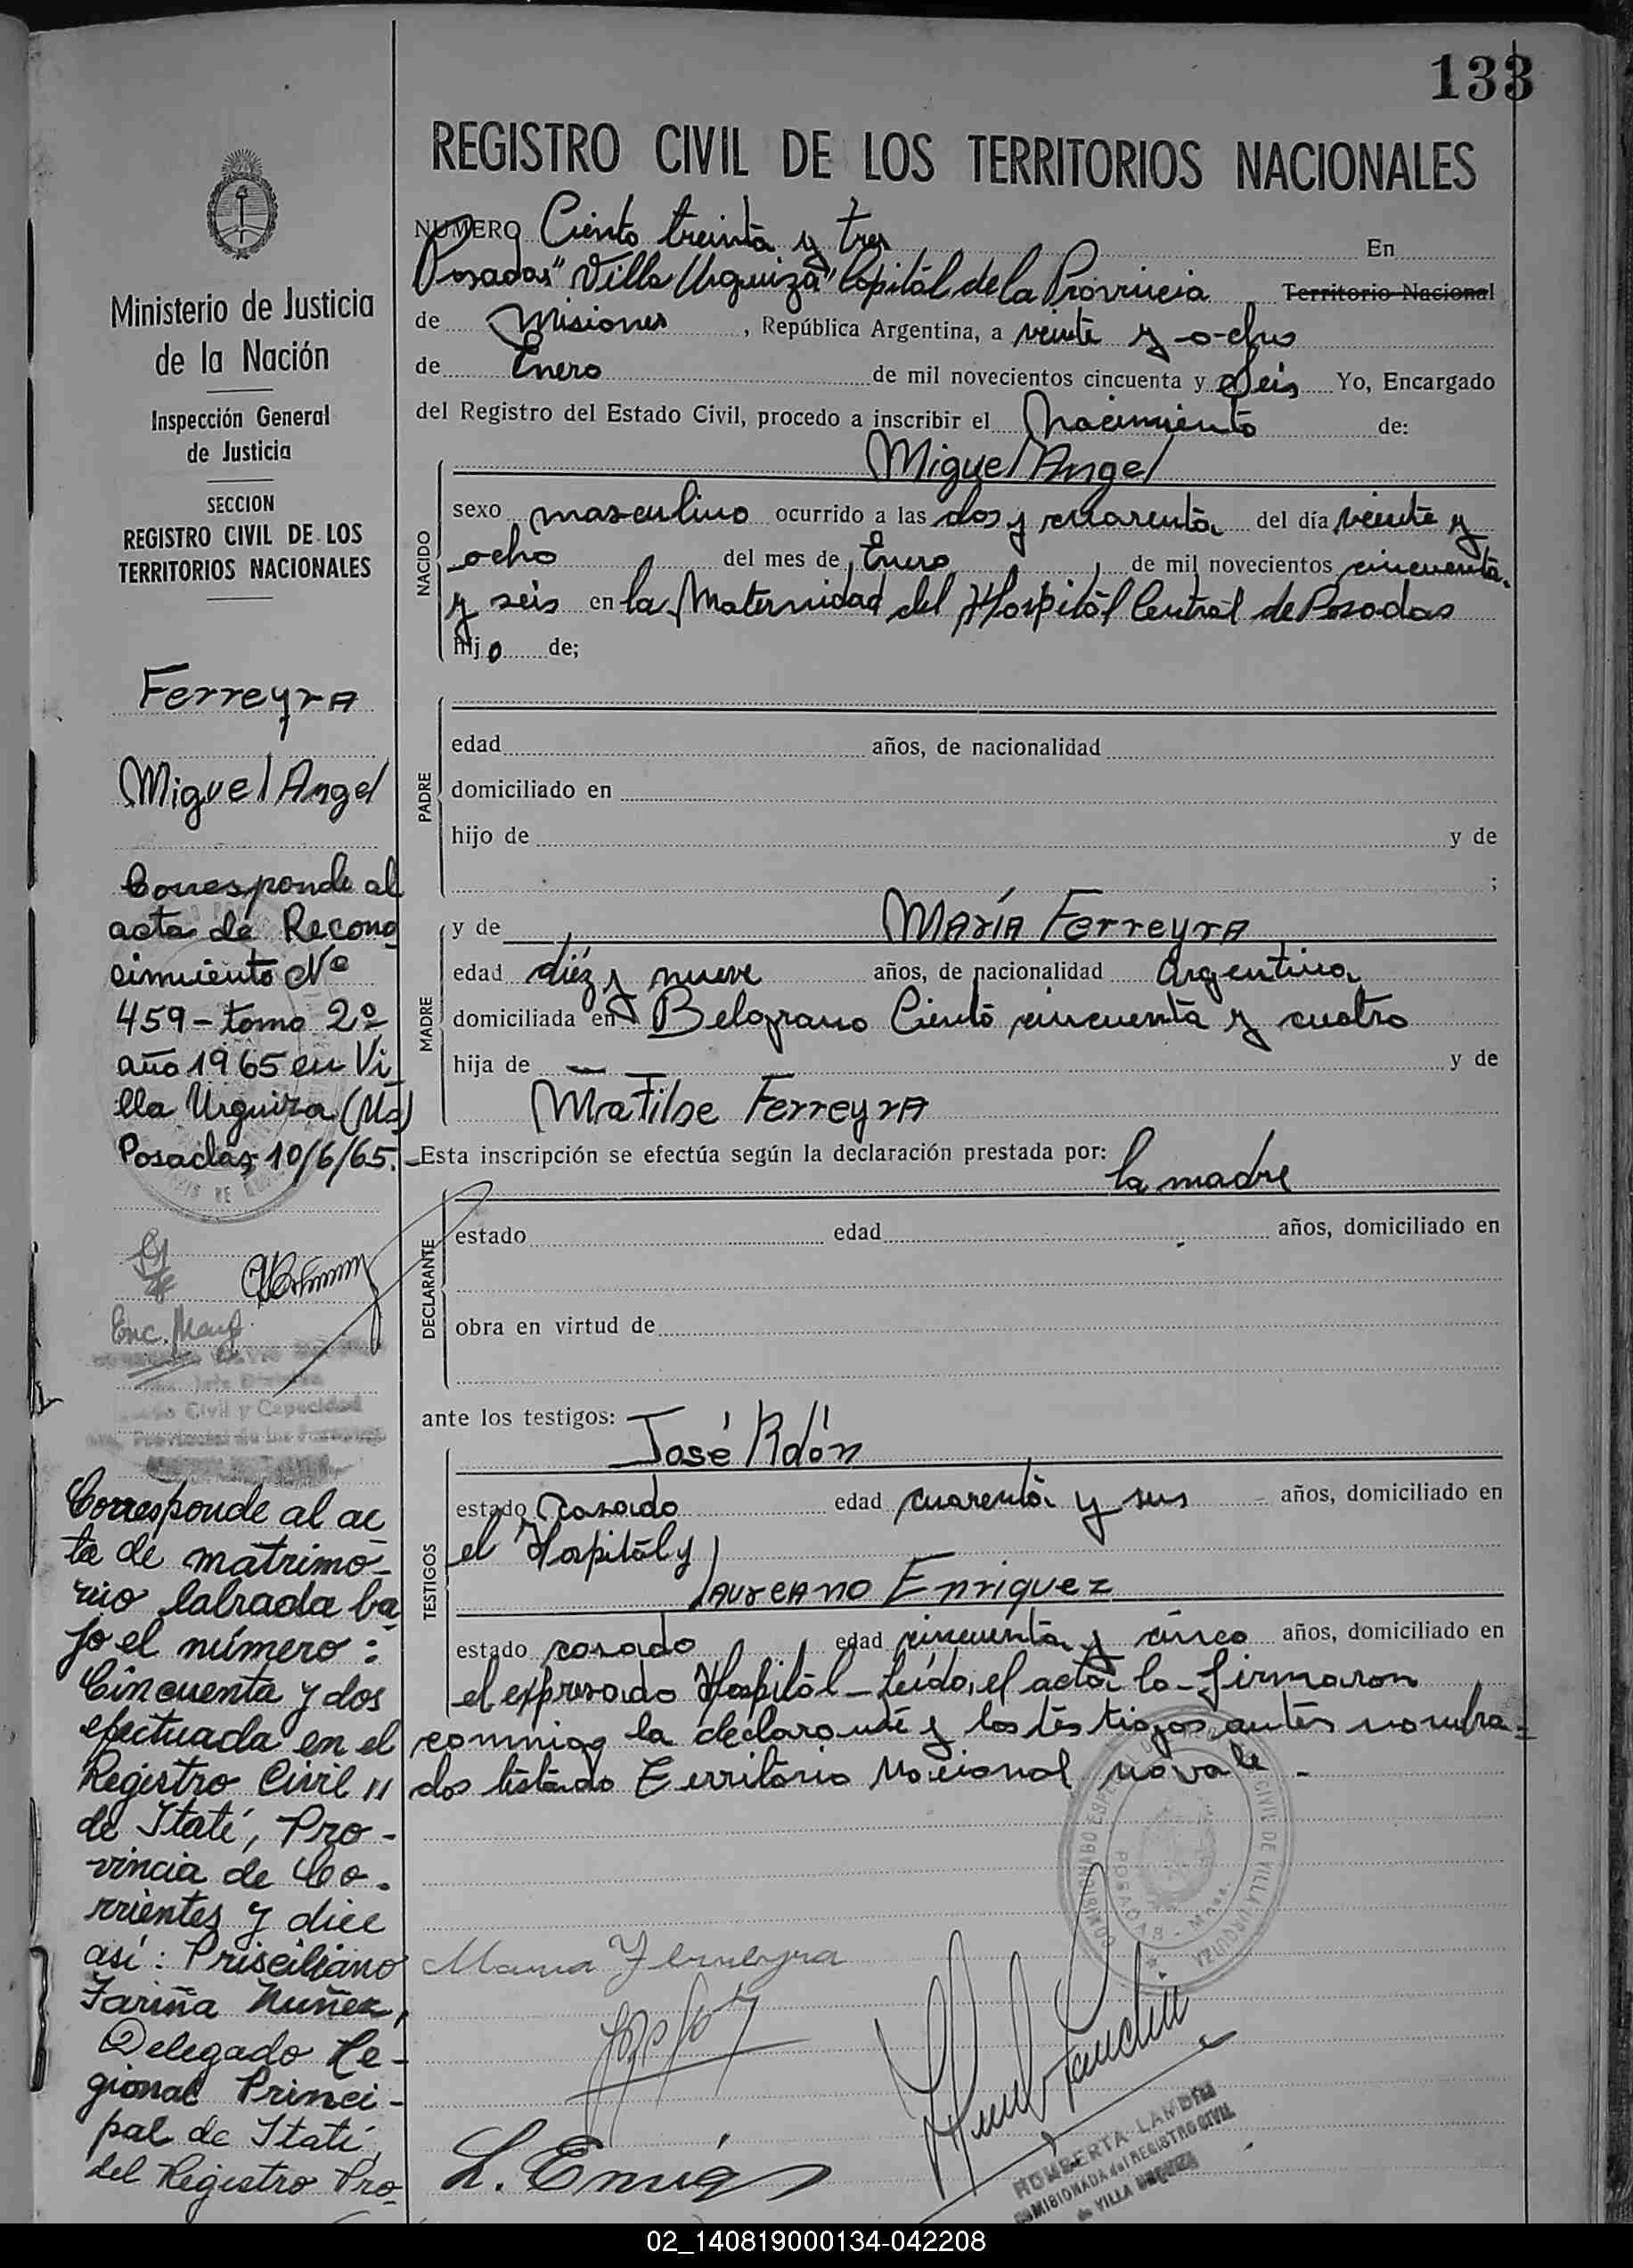 133
REGISTRO CIVIL DE LOS TERRITORIOS NACIONALES
NUMERO Ciento treinta y tres En
Posadas "Villa Urquiza" Capitál de la Provincia Territorio Nacional
de Misiones, República Argentina, a veinte y ocho
de Enero de mil novecientos cincuenta y Seis Yo, Encargado
del Registro del Estado Civil, procedo a inscribir el Nacimiento de:
Miguel Angel
NACIDO
sexo masculino ocurrido a las dos y cuarenta del día veinte y
ocho del mes de Enero de mil novecientos cincuenta
y seis en la Maternidad del Hospitál Central de Posadas
hijo de;
PADRE
edad años, de nacionalidad
domiciliado en
hijo de y de
;
MADRE
y de María Ferreyra
edad diéz y nueve años, de nacionalidad Argentina
domiciliada en Belgrano Ciento cincuenta y cuatro
hija de — y de
Matilde Ferreyra
Esta inscripción se efectúa según la declaración prestada por:
la madre
DECLARANTE
estado edad años, domiciliado en
obra en virtud de
ante los testigos:
José Rdón
TESTIGOS
estado casado edad cuarenta y seis años, domiciliado en
el Hospitál y
Laureano Enriquez
estado casado edad cincuenta y cinco años, domiciliado en
el expresado Hospitál - Leída el acta la firmaron
conmigo la declarante y los testigos antes nombra=
dos testado Territorio Nacional no vale -
Maria Ferreyra
L. Enriq
COMISIONADO ESPECIAL DEL REGISTRO CIVIL DE VILLA URQUIZA
POSADAS - Mnes.
ROMBERTA LANDIN
COMISIONADA del REGISTRO CIVIL
de VILLA URQUIZA
Ministerio de Justicia
de la Nación
Inspección General
de Justicia
SECCION
REGISTRO CIVIL DE LOS
TERRITORIOS NACIONALES
Ferreyra
Miguel Angel
Corresponde al
acta de Recono
cimiento Nº
459 - tomo 2º
año 1965 en Vi
lla Urquiza (Ms)
Posadas, 10/6/65.-
Civil y Capacidad
Corresponde al ac
ta de matrimo-
nio labrada ba
jo el número:
Cincuenta y dos
efectuada en el
Registro Civil "
de Itatí, Pro-
vincia de Co-
rrientes y dice
así: Prisciliano
Fariña Nuñez,
Delegado Re-
gional Princi-
pal de Itatí,
del Registro Pro-
02_140819000134-042208